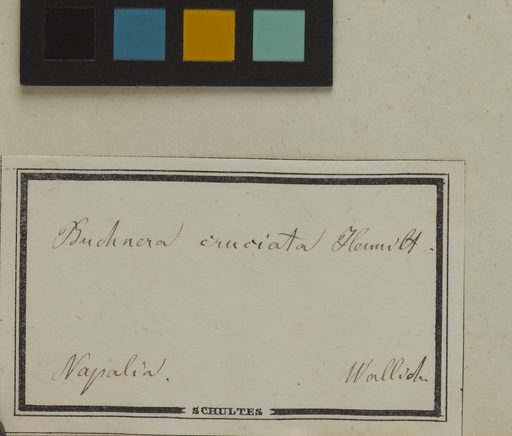 Buchnera cruciata Hamilt.
Napalia. Wallich.
SCHULTES